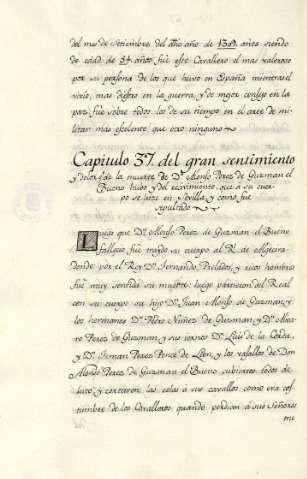 del mes de Setiembre del dho año de 1309 años siendo
de edad de 54 años fue este Cavallero el mas valeroso
por su persona de los que huvo en España mientras el
vivio, mas diestro en la guerra, y de mejor consejo en la
paz, fue sobre todos los de su tiempo en el arte de mi-
litar mas excelente que otro ninguno
Capitulo 37. del gran sentimiento
y dolor q.e de la muerte de D.n Alonso Perez de Guzman el
Bueno huvo y del recevimiento, que á su cuer-
po se hizo en Sevilla y como fue
sepultado
Luego que D.n Alonso Perez de Guzman el Bueno
fallecio fue traydo su cuerpo al R. de Algecira
donde por el Rey D.n Fernando, Prelados, y ricos hombres
fue muy sentida su muerte: luego partieron del Real
con su cuerpo su hijo D.n Juan Alonso de Guzman, y
los hermanos D.n Pedro Nuñez de Guzman, y D.n Alva-
ro Perez de Guzman, y sus yernos D.n Luis de la Cerda,
y D.n Fernan Perez Ponce de Leon, y los vasallos de Don
Alonso Perez de Guzman el Bueno cubiertos todos de
luto, y cortaron las colas á sus cavallos como era cos-
tumbre de los Cavalleros quando perdian á sus Señores